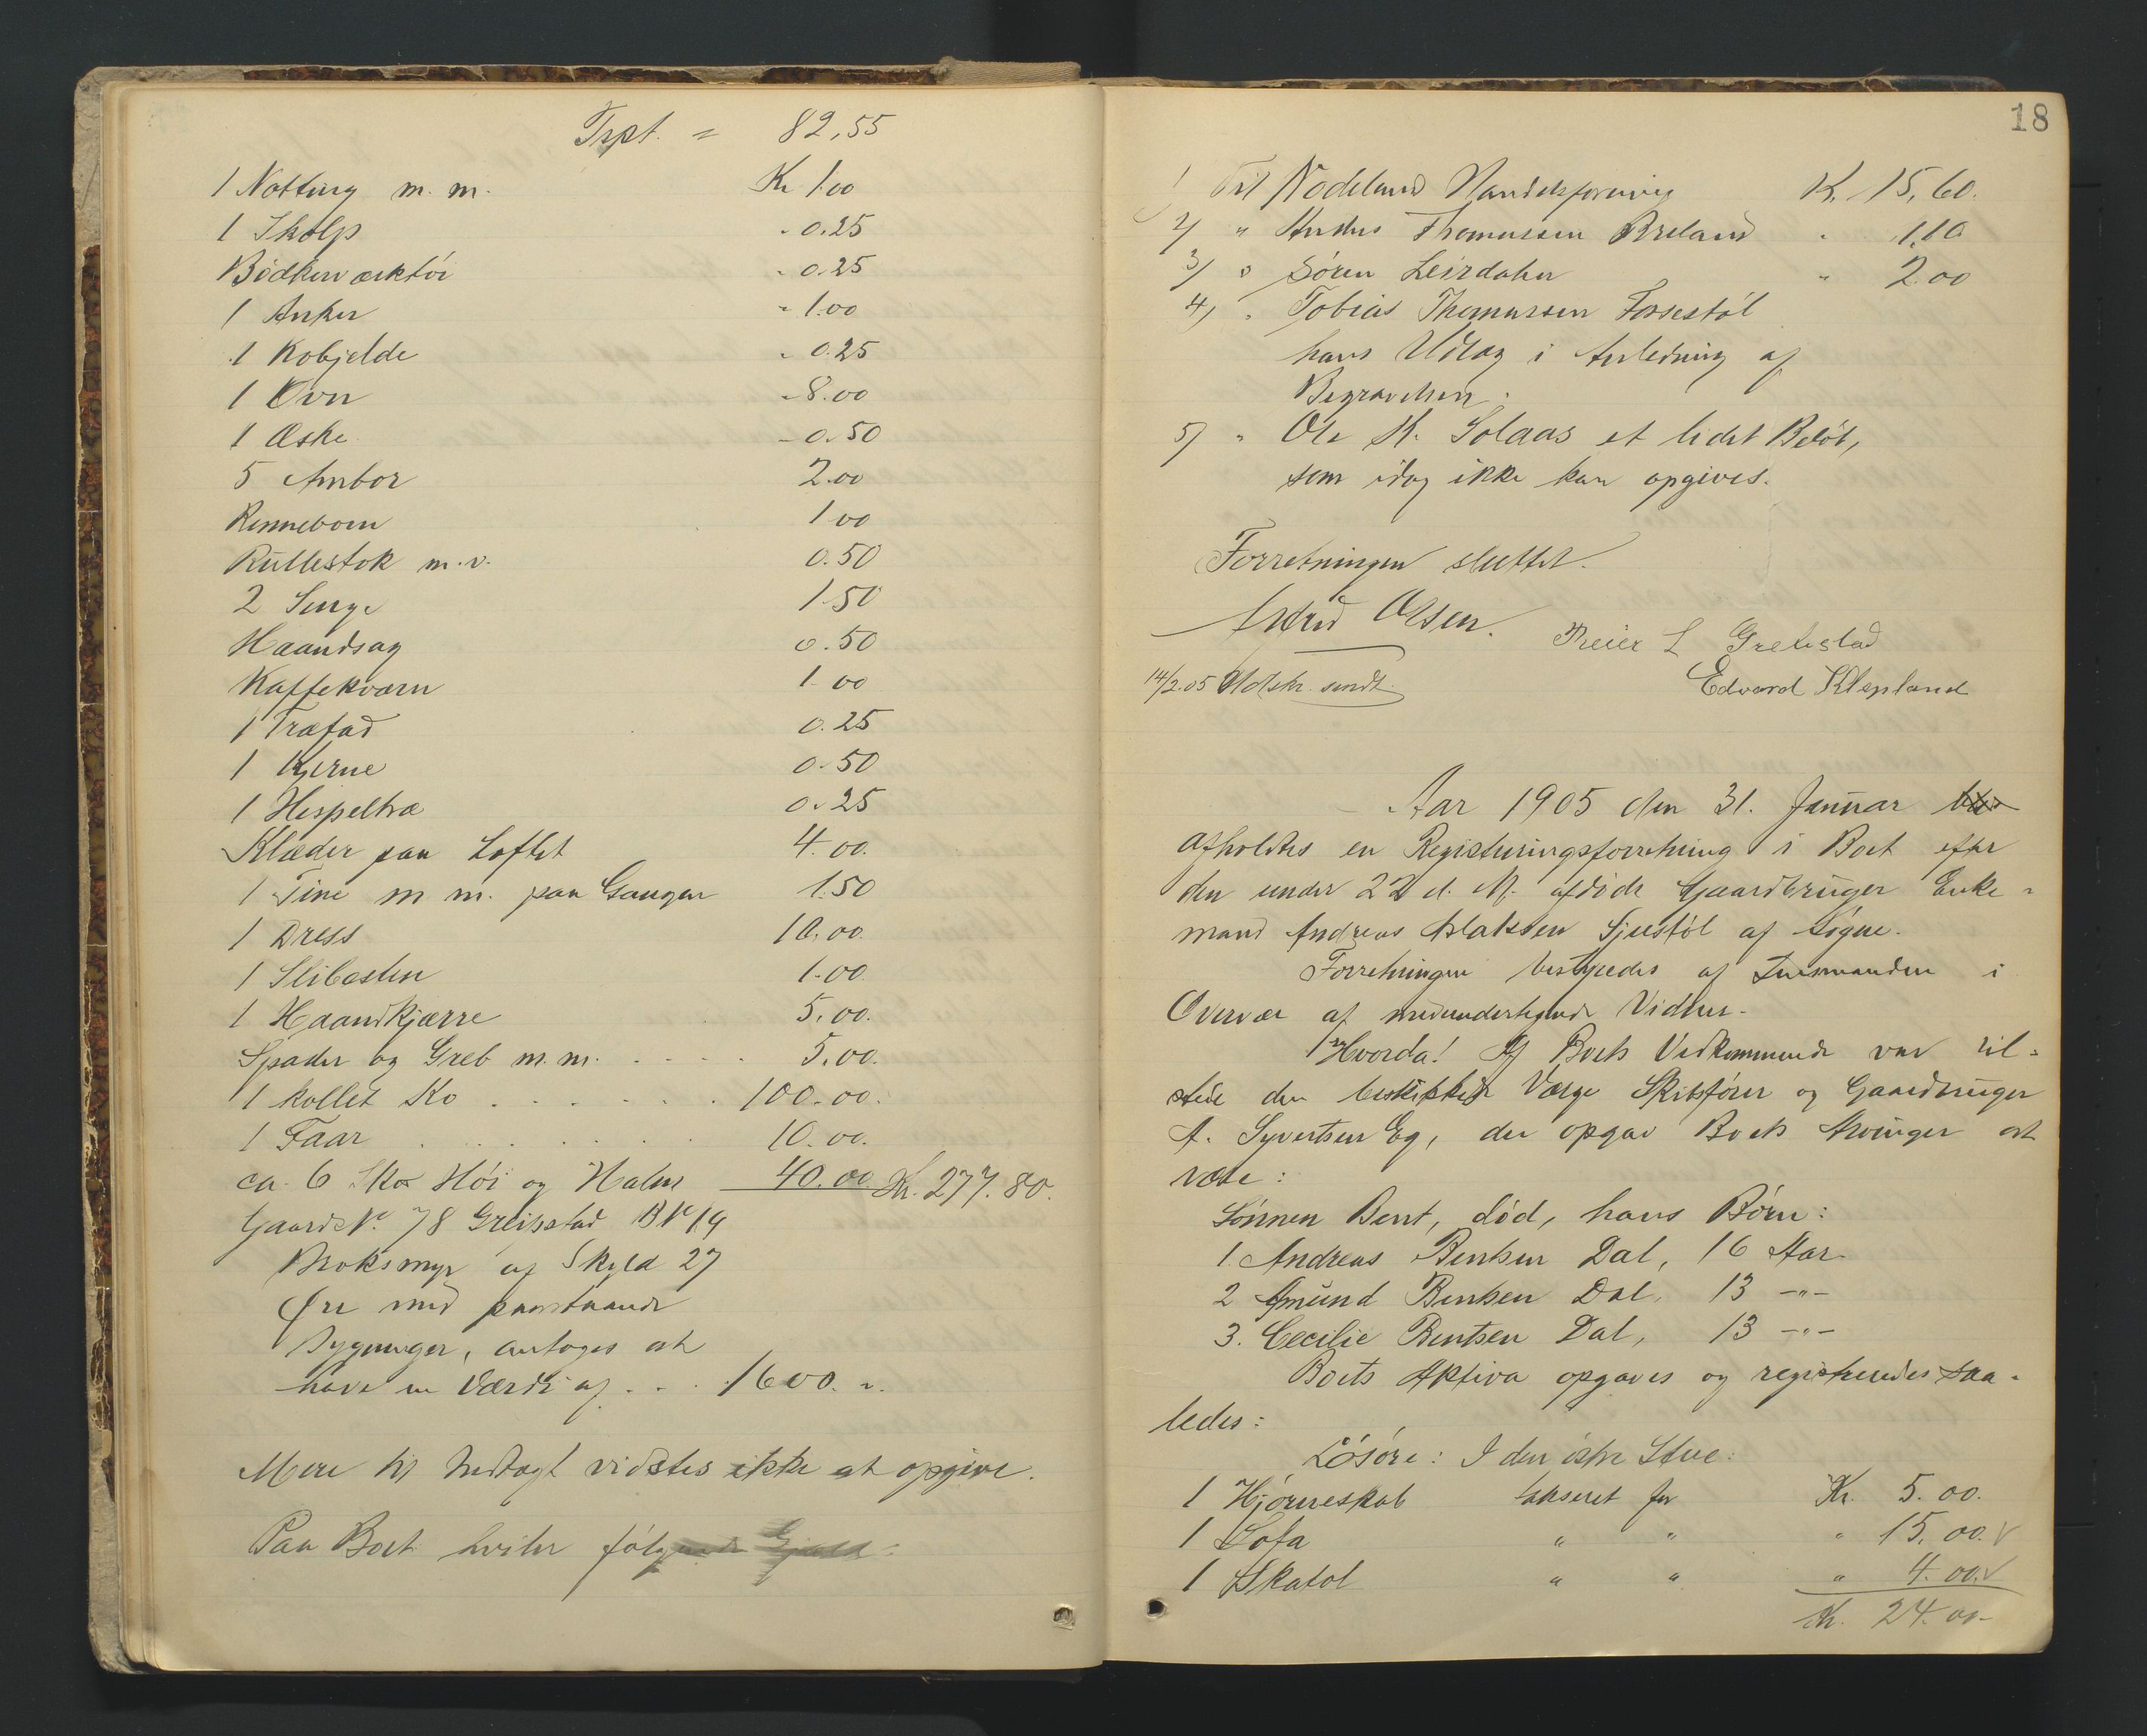 Trpt. = 82,55
1 Notting m. m. Kr 1.00
1 Skolp - 0.25
Bödkerværktöi - 0.25
1 Anker - 1.00
1 Kobjelde - 0.25
1 Ovn - 8.00
1 Æske - 0.50
5 Ambor 2.00
Renneborn 1 00
Rullestok m.v. 0.50
2 Senge 1.50
Haandsag 0.50
Kaffekværn 1-00
1 Træfad 0.25
1 Kjerne 0.50
1 Hespeltræ 0.25
Klæder paa Loftet 4.00.
1 Tine m m. paa Gangen 1.50
1 Dress 10.00.
1 Slibesten 1.00.
1 Haandkjærre 5.00.
Spader og Greb m.m. . . . . 5.00.
1 kollet Ko . . . . . . 100.00.
1 Faar . . . . . . . 10.00.
ca. 6 Höi og Halm 40.00. Kr. 277.80.
Gaards No. 78 Greibstad BNo 19
Broksmyr af Skyld 27
Øre med paastaaende
Bygninger, antoges at
have en Værdi af . . . 1600. -.
Mere til Indtægt vidstes ikke at opgive.
Paa Boet hviler följende Gjæld:
18
1/ Til Nodeland Handelsforening Kr. 15,60.
2/ " Anders Thomassen Breland " 1,10
3/ " Sören Leirdalen " 2.00
4/ " Tobias Thomassen Fossestöl
hans Udlæg i Anledning af
Begravelsen.
5/ " Ole K. Solaas et lidet Belöb,
som idag ikke kan opgives.
Forretningen sluttet.
Olsen. Preier L Grebstad
14/2.05 Udskr. sendt. Edvard Klepland
Aar 1905 den 31. Januar blev
afholdtes en Registreringsforretning i Boet efter
den under 22 d. M. afdöde Gaardbruger Enke-
mand Andreas Aslaksen Sjustöl af Sögne.
Forretningen bestyredes af Lensmanden i
Overvær af medundertegnede Vidner.
Hvorda! Af Boets Vedkommende var til-
stede den beskikkede Værge Skibsförer og Gaardbruger
A. Syvertsen Eg, der opgav Boets Arvinger at
være:
Sönnen Bent, död, hans Börn:
1. Andreas Bentsen Dal, 16 Aar
2 Amund Bentsen Dal, 13 -"-
3. Cecilie Bentsen Dal, 13 -"-
Boets Aktiva opgaves og registreredes saa-
ledes:
Lösöre: I den östre Stue:
1 Hjörneskab takseret for Kr. 5.00.
1 Sofa " " " 15.00.
1 Skatol " " " 4.00.
Kr. 24.00-